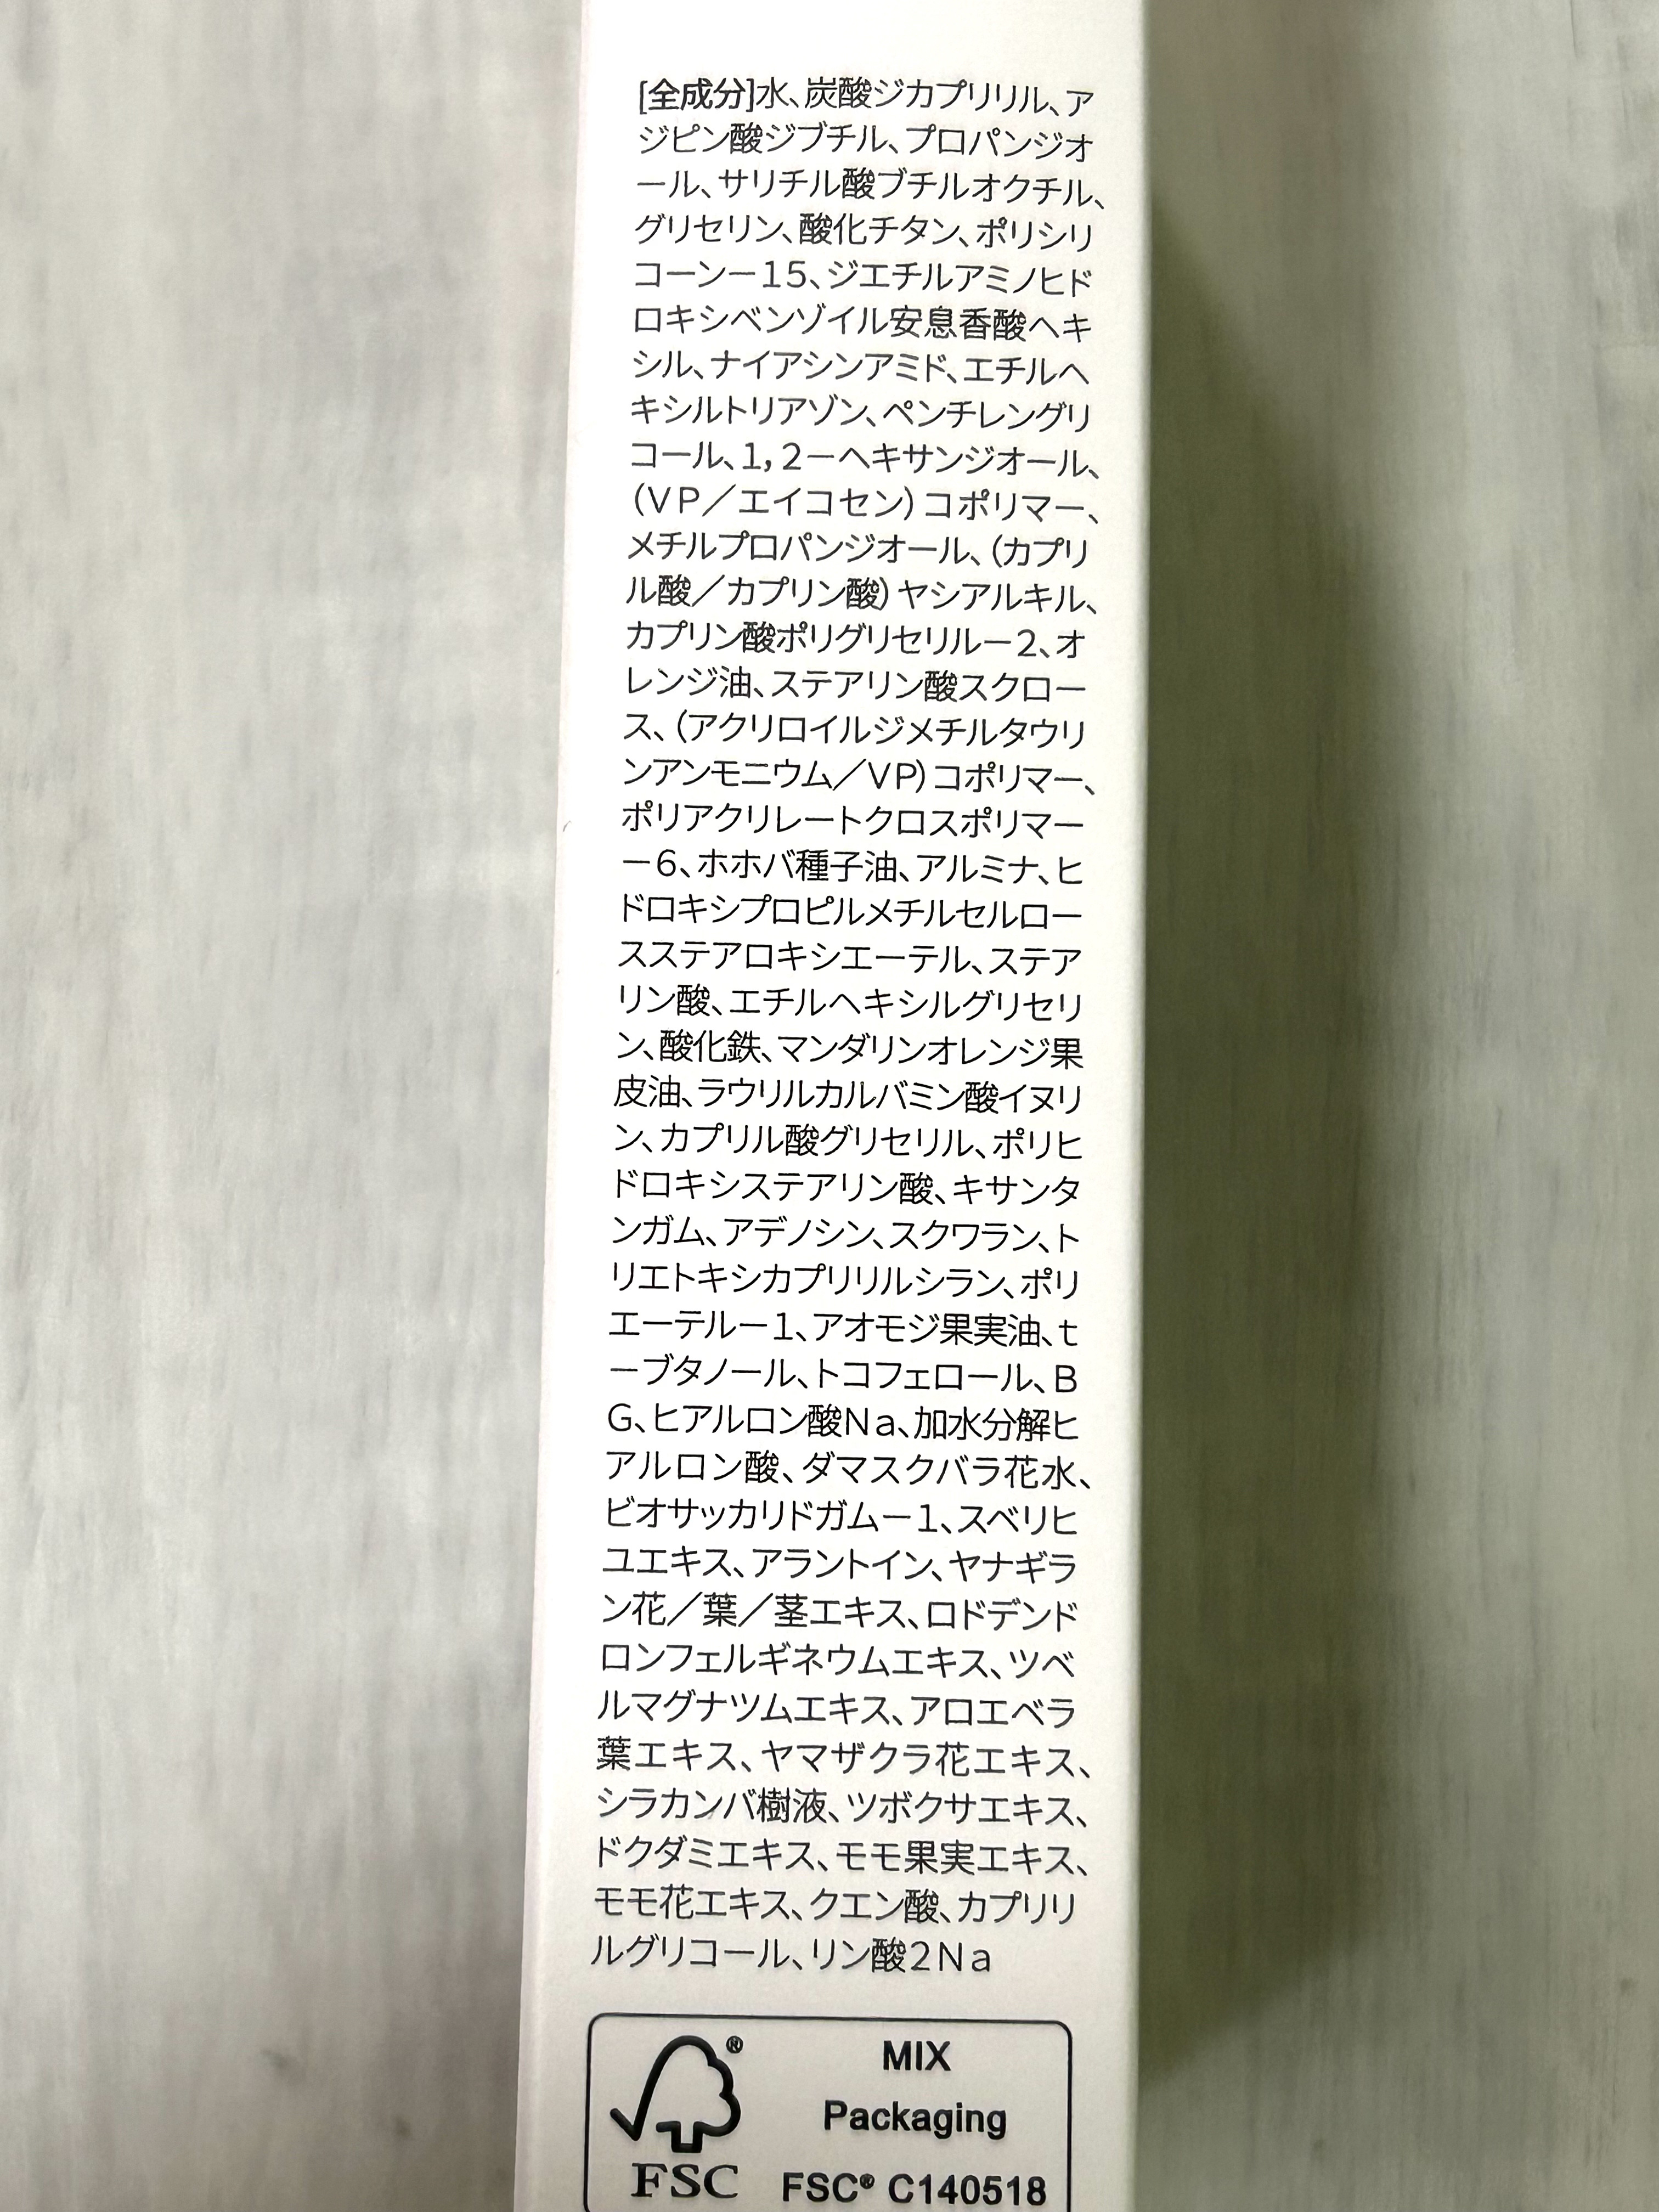 [全成分]水、炭酸ジカプリリル、ア
ジピン酸ジブチル、プロパンジオ
ール、サリチル酸ブチルオクチル、
グリセリン、酸化チタン、ポリシリ
コーンー15、ジエチルアミノヒド
ロキシベンゾイル安息香酸ヘキ
シル、ナイアシンアミド、エチルヘ
キシルトリアゾン、ペンチレングリ
コール、1，2ーヘキサンジオール、
(VP／エイコセン)コポリマー、
メチルプロパンジオール、(カプリ
ル酸／カプリン酸)ヤシアルキル、
カプリン酸ポリグリセリルー2、オ
レンジ油、ステアリン酸スクロー
ス、(アクリロイルジメチルタウリ
ンアンモニウム／VP)コポリマー、
ポリアクリレートクロスポリマー
ー6、ホホバ種子油、アルミナ、ヒ
ドロキシプロピルメチルセルロー
スステアロキシエーテル、ステア
リン酸、エチルヘキシルグリセリ
ン、酸化鉄、マンダリンオレンジ果
皮油、ラウリルカルバミン酸イヌリ
ン、カプリル酸グリセリル、ポリヒ
ドロキシステアリン酸、キサンタ
ンガム、アデノシン、スクワラン、ト
リエトキシカプリリルシラン、ポリ
エーテルー1、アオモジ果実油、t
ーブタノール、トコフェロール、B
G、ヒアルロン酸Na、加水分解ヒ
アルロン酸、ダマスクバラ花水、
ビオサッカリドガムー1、スベリヒ
ユエキス、アラントイン、ヤナギラ
ン花／葉／茎エキス、ロドデンド
ロンフェルギネウムエキス、ツベ
ルマグナツムエキス、アロエベラ
葉エキス、ヤマザクラ花エキス、
シラカンバ樹液、ツボクサエキス、
ドクダミエキス、モモ果実エキス、
モモ花エキス、クエン酸、カプリリ
ルグリコール、リン酸2Na
MIX
Packaging
FSC® C140518
®
FSC